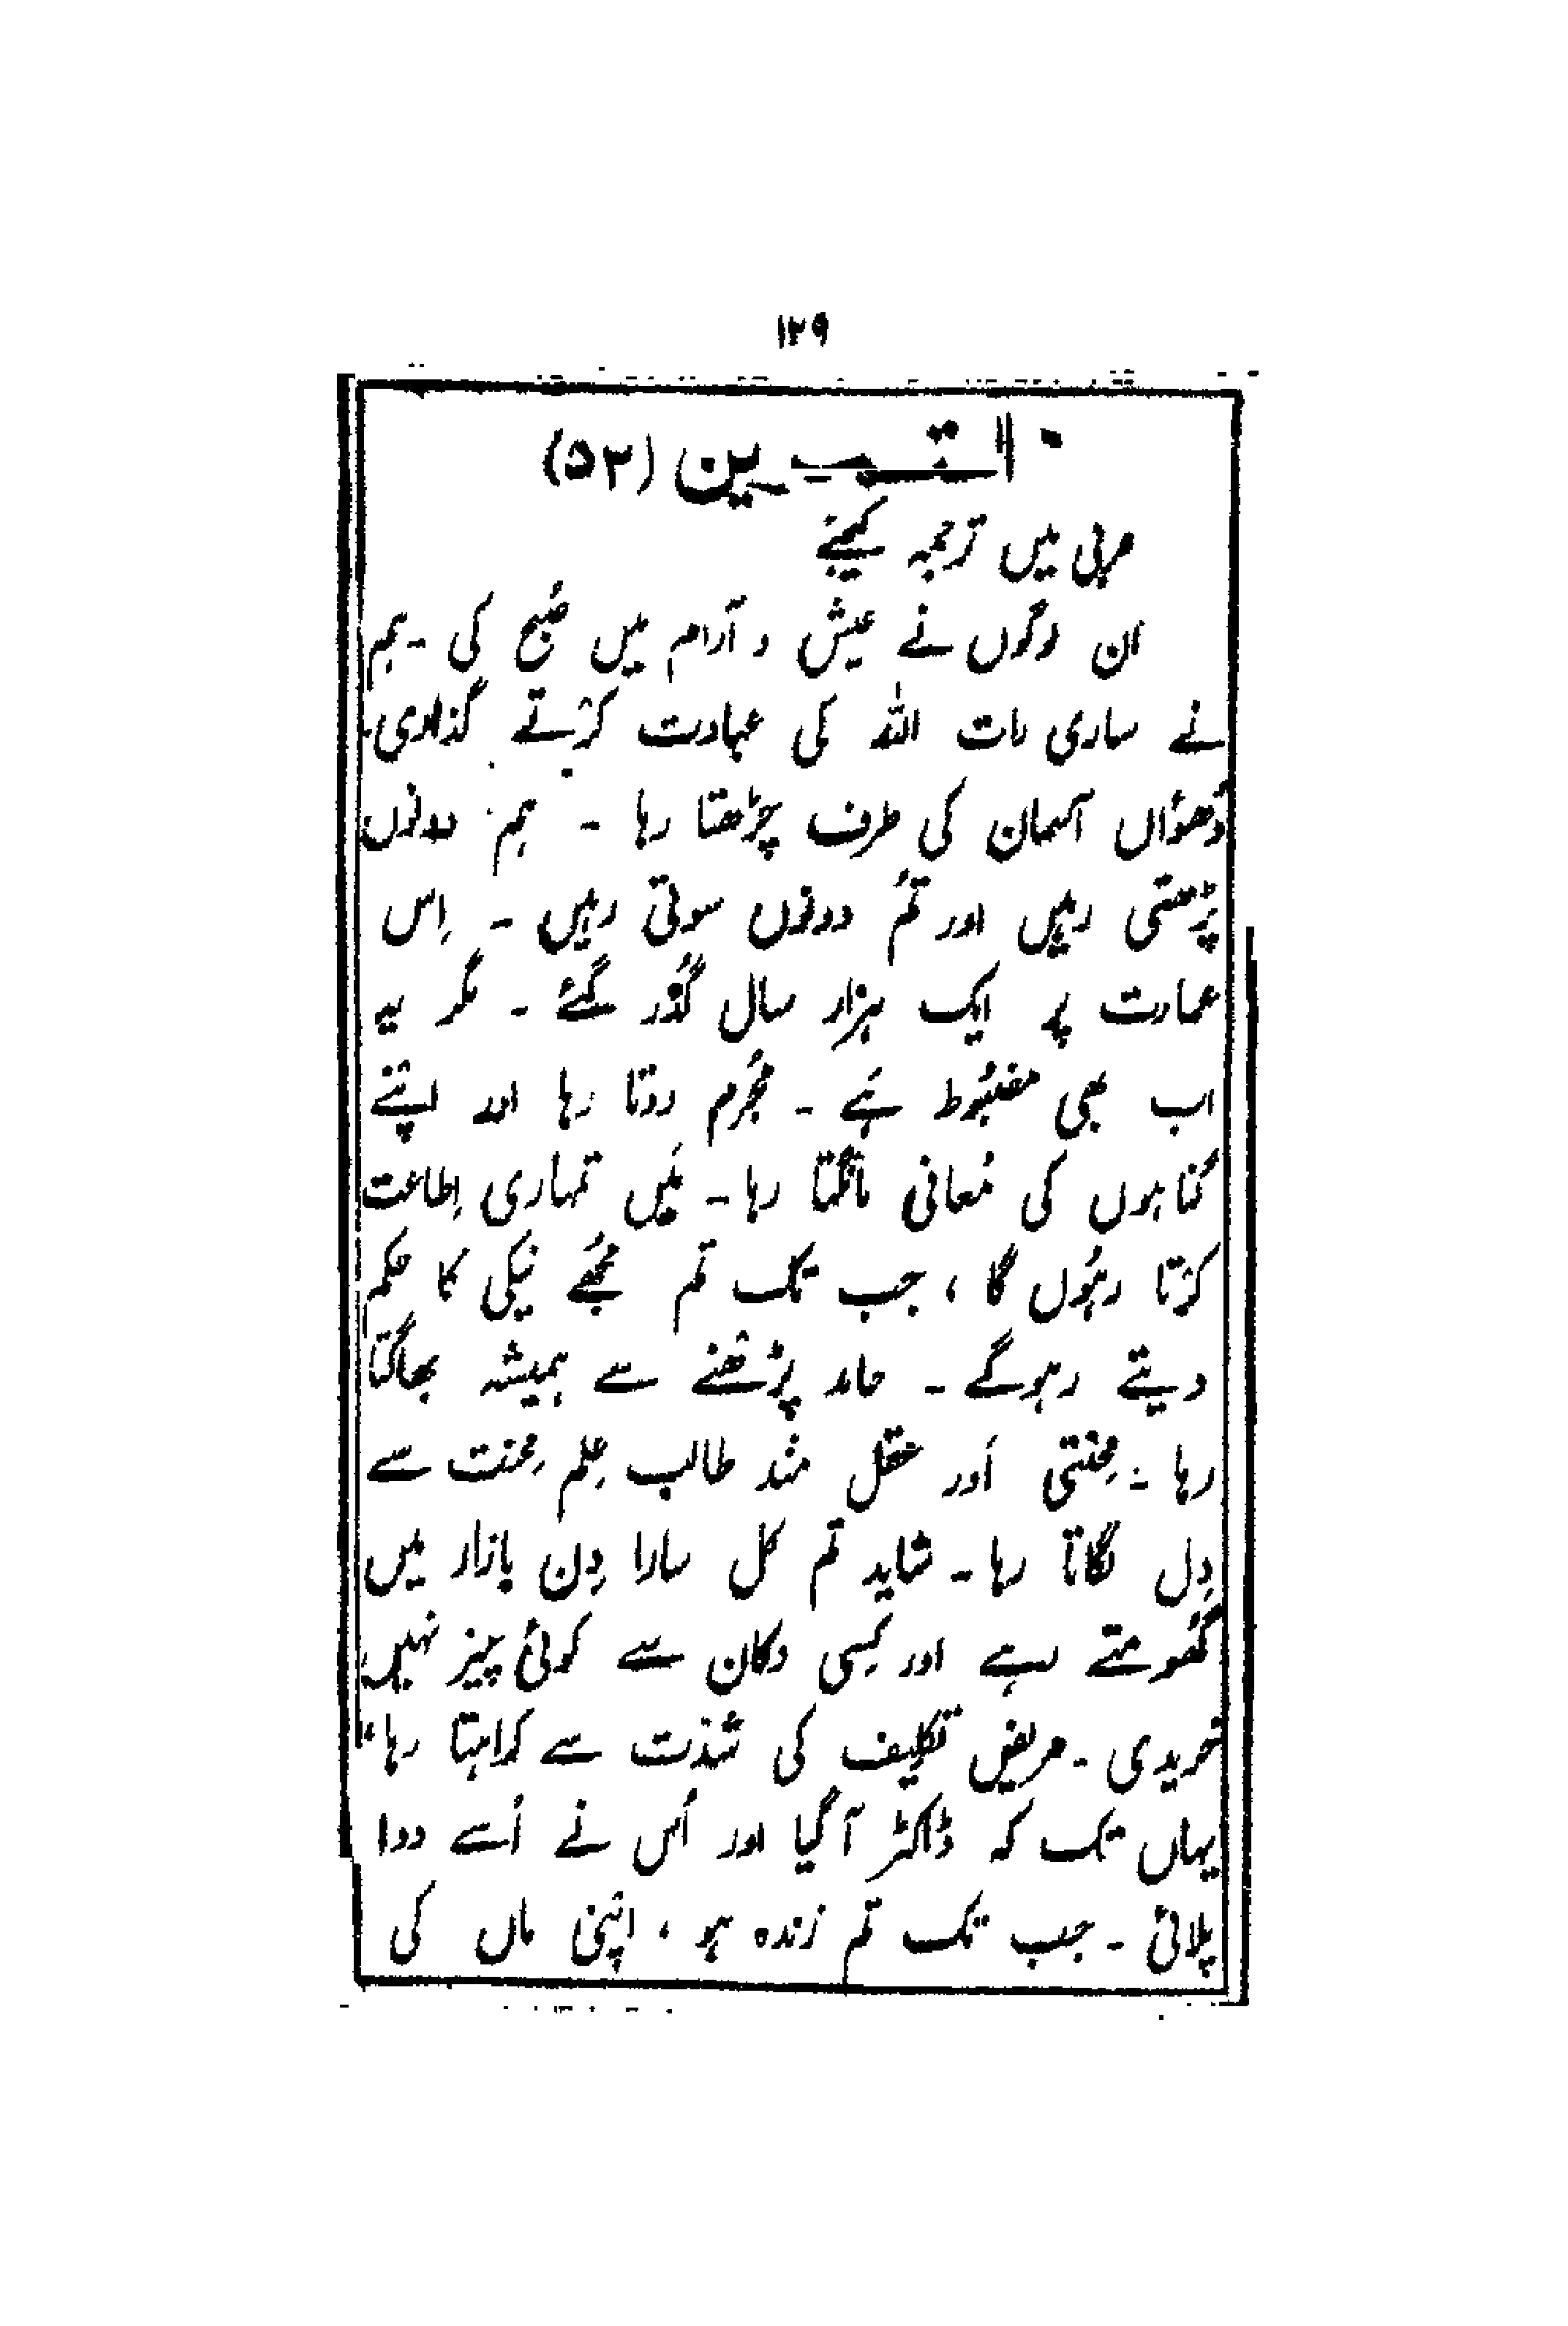 ۱۲۹
التمرین (۵۲)
عربی میں ترجمہ کیجئے
ان لوگوں نے عیش و آرام میں صُبح کی ۔ ہم
نے ساری رات اللہ کی عبادت کرتے گذاری۔
دُھوٴاں آسمان کی طرف چڑھتا رہا ۔ ہم دونوں
پڑھتی رہیں اور تمُ دونوں سوتی رہیں ۔ اِس
عمارت پر ایک ہزار سال گُذر گئے ۔ مگر یہ
اب بھی مضبُوط ہَے ۔ مُجرم روتا رہا اور اپنے
گناہوں کی مُعافی مانگتا رہا ۔ مَیں تمہاری اِطاعت
کرتا رہُوں گا ، جب تک تم مُجھے نیکی کا حکم
دیتے رہوگے ۔ حامد پڑھنے سے ہمیشہ بھاگتا
رہا ۔ مِحنتی اَور عقل مند طالب عِلم مِحنت سے
دِل لگاتا رہا ۔ شاید تم کل سارا دِن بازار میں
گھُومتے رہے اور کِسی دکان سے کوئی چیز نہیں
خریدی ۔ مریض تکلِیف کی شدّت سے کراہتا رہا ،
یہاں تک کہ ڈاکٹر آ گیا اور اُس نے اُسے دوا
پلائی ۔ جب تک تم زندہ ہو ، اپنی ماں کی